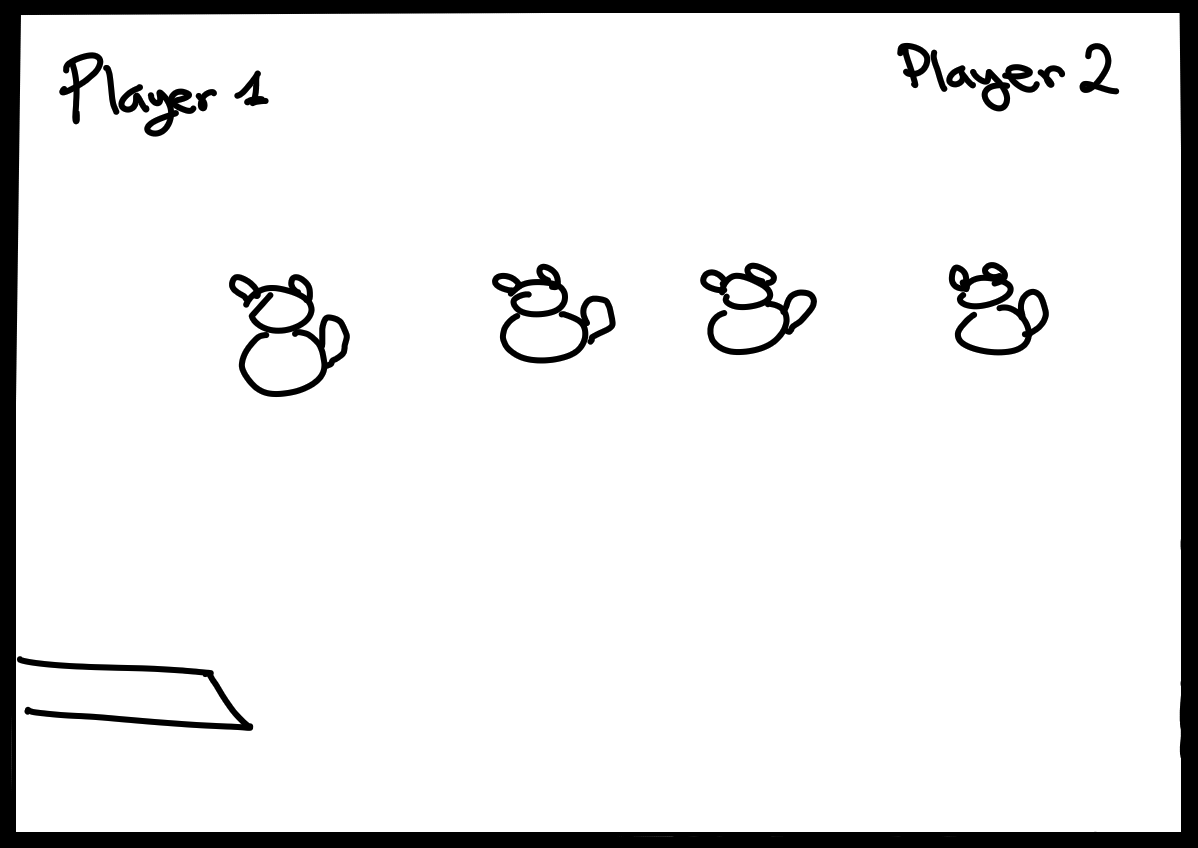 Player 1
Player 2